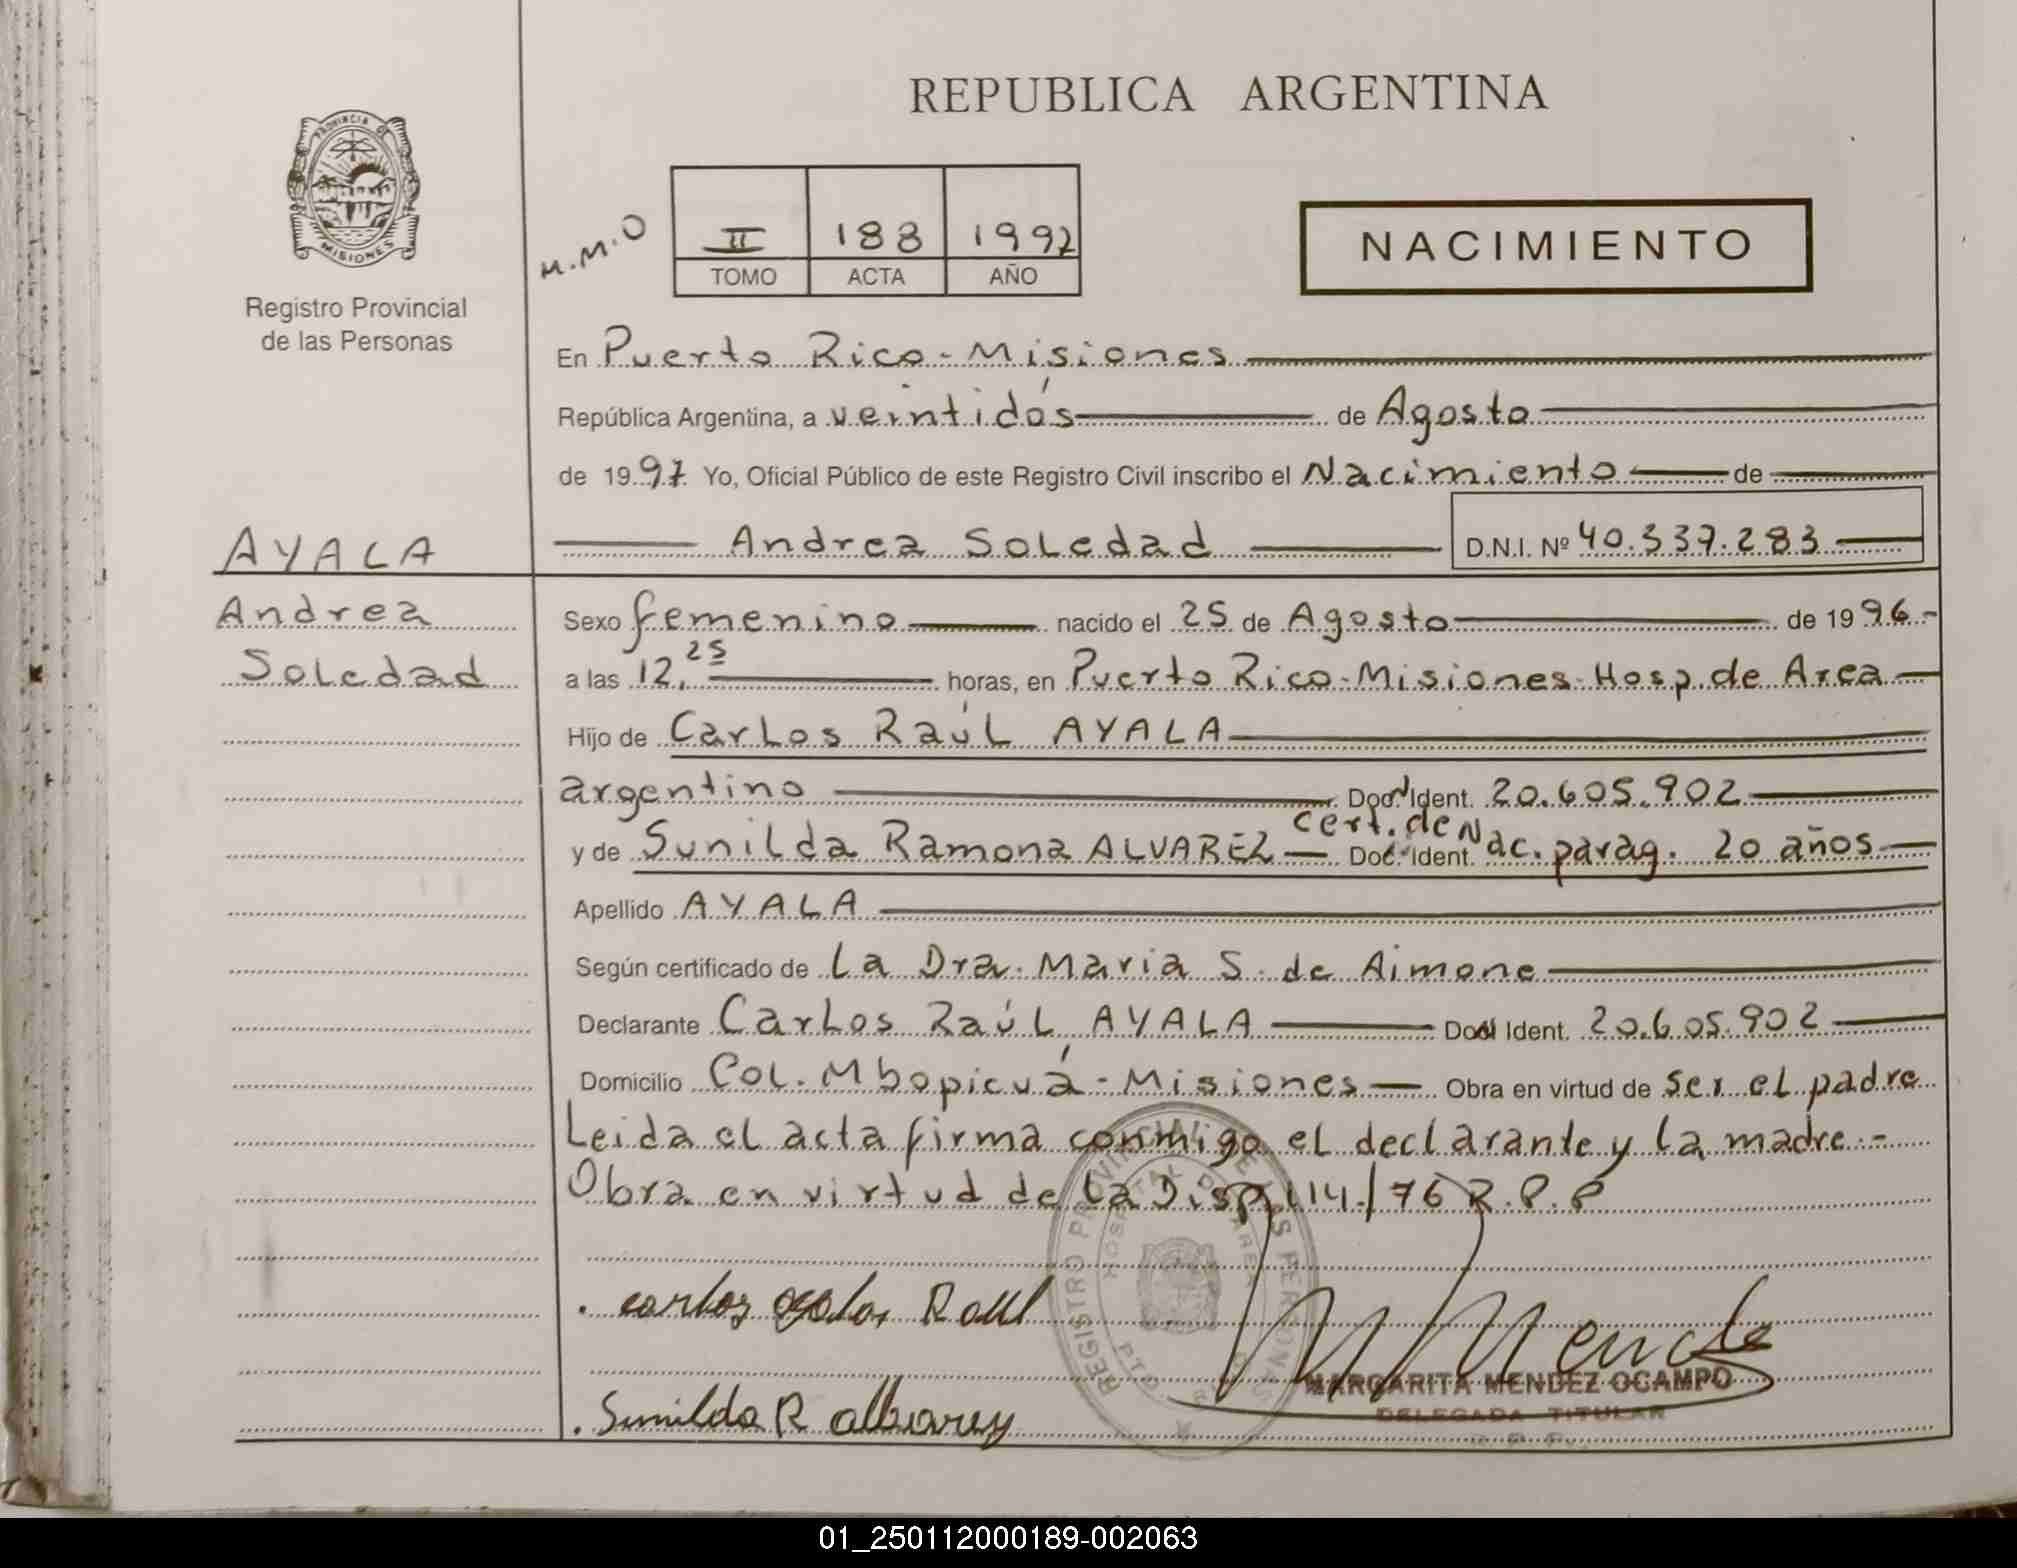 REPUBLICA ARGENTINA
PROVINCIA DE
MISIONES
Registro Provincial
de las Personas
M.M.O
II 188 1997
TOMO ACTA AÑO
NACIMIENTO
En Puerto Rico - Misiones
República Argentina, a veintidós de Agosto
de 1997 Yo, Oficial Público de este Registro Civil inscribo el Nacimiento de
AYALA
Andrea Soledad D.N.I. Nº 40.337.283
Andrea
Soledad
Sexo femenino nacido el 25 de Agosto de 1996.-
a las 12,25 horas, en Puerto Rico-Misiones-Hosp. de Area
Hijo de Carlos Raúl AYALA
argentino Doc. Ident. 20.605.902
y de Sunilda Ramona ALVAREZ Doc. Ident. cert. de Nac. parag. 20 años
Apellido AYALA
Según certificado de La Dra. Maria S. de Aimone
Declarante Carlos Raúl AYALA Ident. 20.605.902
Domicilio Col. Mbopicuá - Misiones Obra en virtud de ser el padre
Leida el acta firma conmigo el declarante y la madre.-
Obra en virtud de la Disp. 114/76 R.P.P
REGISTRO PROVINCIAL DE LAS PERSONAS
HOSPITAL DE AREA
carlos ayala Raul
M Mende
MARGARITA MENDEZ OCAMPO
DELEGADA TITULAR
Sunilda R albarez
01_250112000189-002063